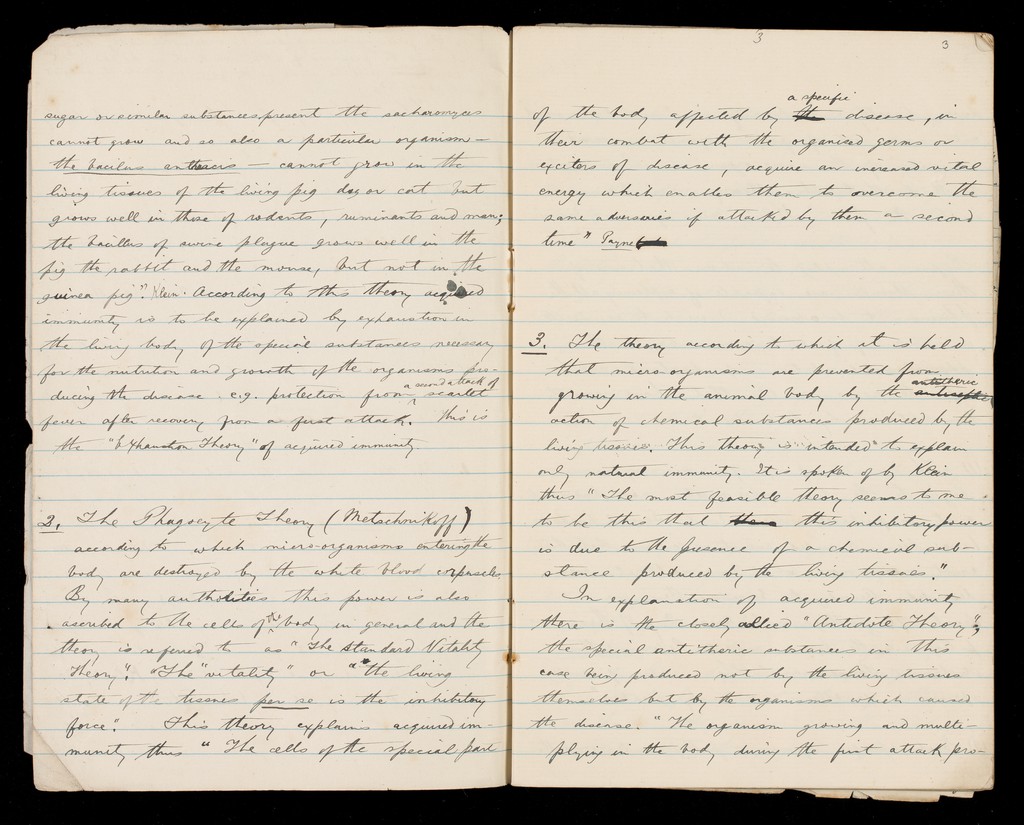 sugar or similar substances present the sacharomyces
cannot grow and so also a particular organism—
the bacillus anthracis — cannot grow in the
living tissues of the living pig dog or cat but
grows well in those of rodents, ruminants and man;
the bacillus of swine plague grows well in the
pig the rabbit and the mouse, but not in the
guinea pig". Klein. According to this theory acquired
immunity is to be explained by exhaustion in
the living body of the special substances necessary
for the nutrition and growth of the organisms pro-
ducing the disease e.g. protection from a second attack of scarlet
fever after recovery from a first attack. This is
the "Exhaustion Theory" of acquired immunity
2. The Phagocyte Theory (Metschnikoff)
according to which micro-organisms entering the
body are destroyed by the white blood corpuscles.
By many authorities this power is also
ascribed to the cells of the body in general and the
theory is referred to as "The standard Vitality
Theory". "The "vitality" or "the living
state of the tissues per se is the inhibitory
force". This theory explains acquired im-
munity thus "The cells of the special part
3
3
of the body affected by the a specific disease, in
their combat with the organised germs or
exciters of disease, acquire an increased vital
energy which enables them to overcome the
same adversaries if attacked by them a second
time" Payne
3. The theory according to which it is held
that micro-organisms are prevented from
growing in the animal body by the antiseptic antitheric
action of chemical substances produced by the
living tissues. This theory is intended to explain
only natural immunity. It is spoken of by Klein
thus "The most feasible theory seems to me
to be this that this inhibitory power
is due to the presence of a chemical sub-
stance produced by the living tissues."
In explanation of acquired immunity
there is the closely allied "Antidote Theory",
the special antitheric substances in this
case being produced not by the living tissues
themselves but by the organisms which caused
the disease. "The organism growing and multi-
plying in the body during the first attack pro-